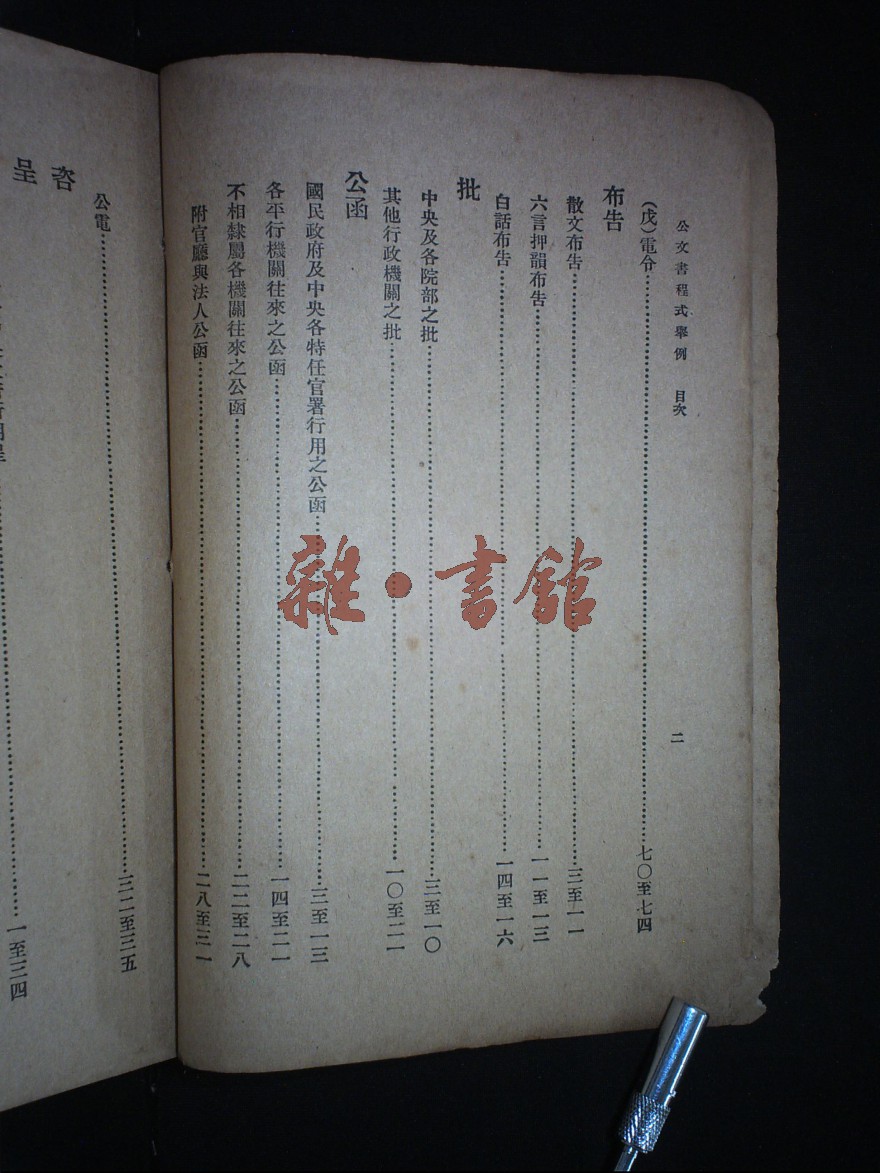 公文書程式舉例 目次 二
(戊)電令……七〇至七四
布告
散文布告……三至一一
六言押韻布告……一一至一三
白話布告……一四至一六
批
中央及各院部之批……三至一〇
其他行政機關之批……一〇至二一
公函
國民政府及中央各特任官署行用之公函……三至一三
各平行機關往來之公函……一四至二一
不相隸屬各機關往來之公函……二二至二八
附官廳與法人公函……二八至三一
公電……三二至三五
咨
呈
一至三四
雜·書館